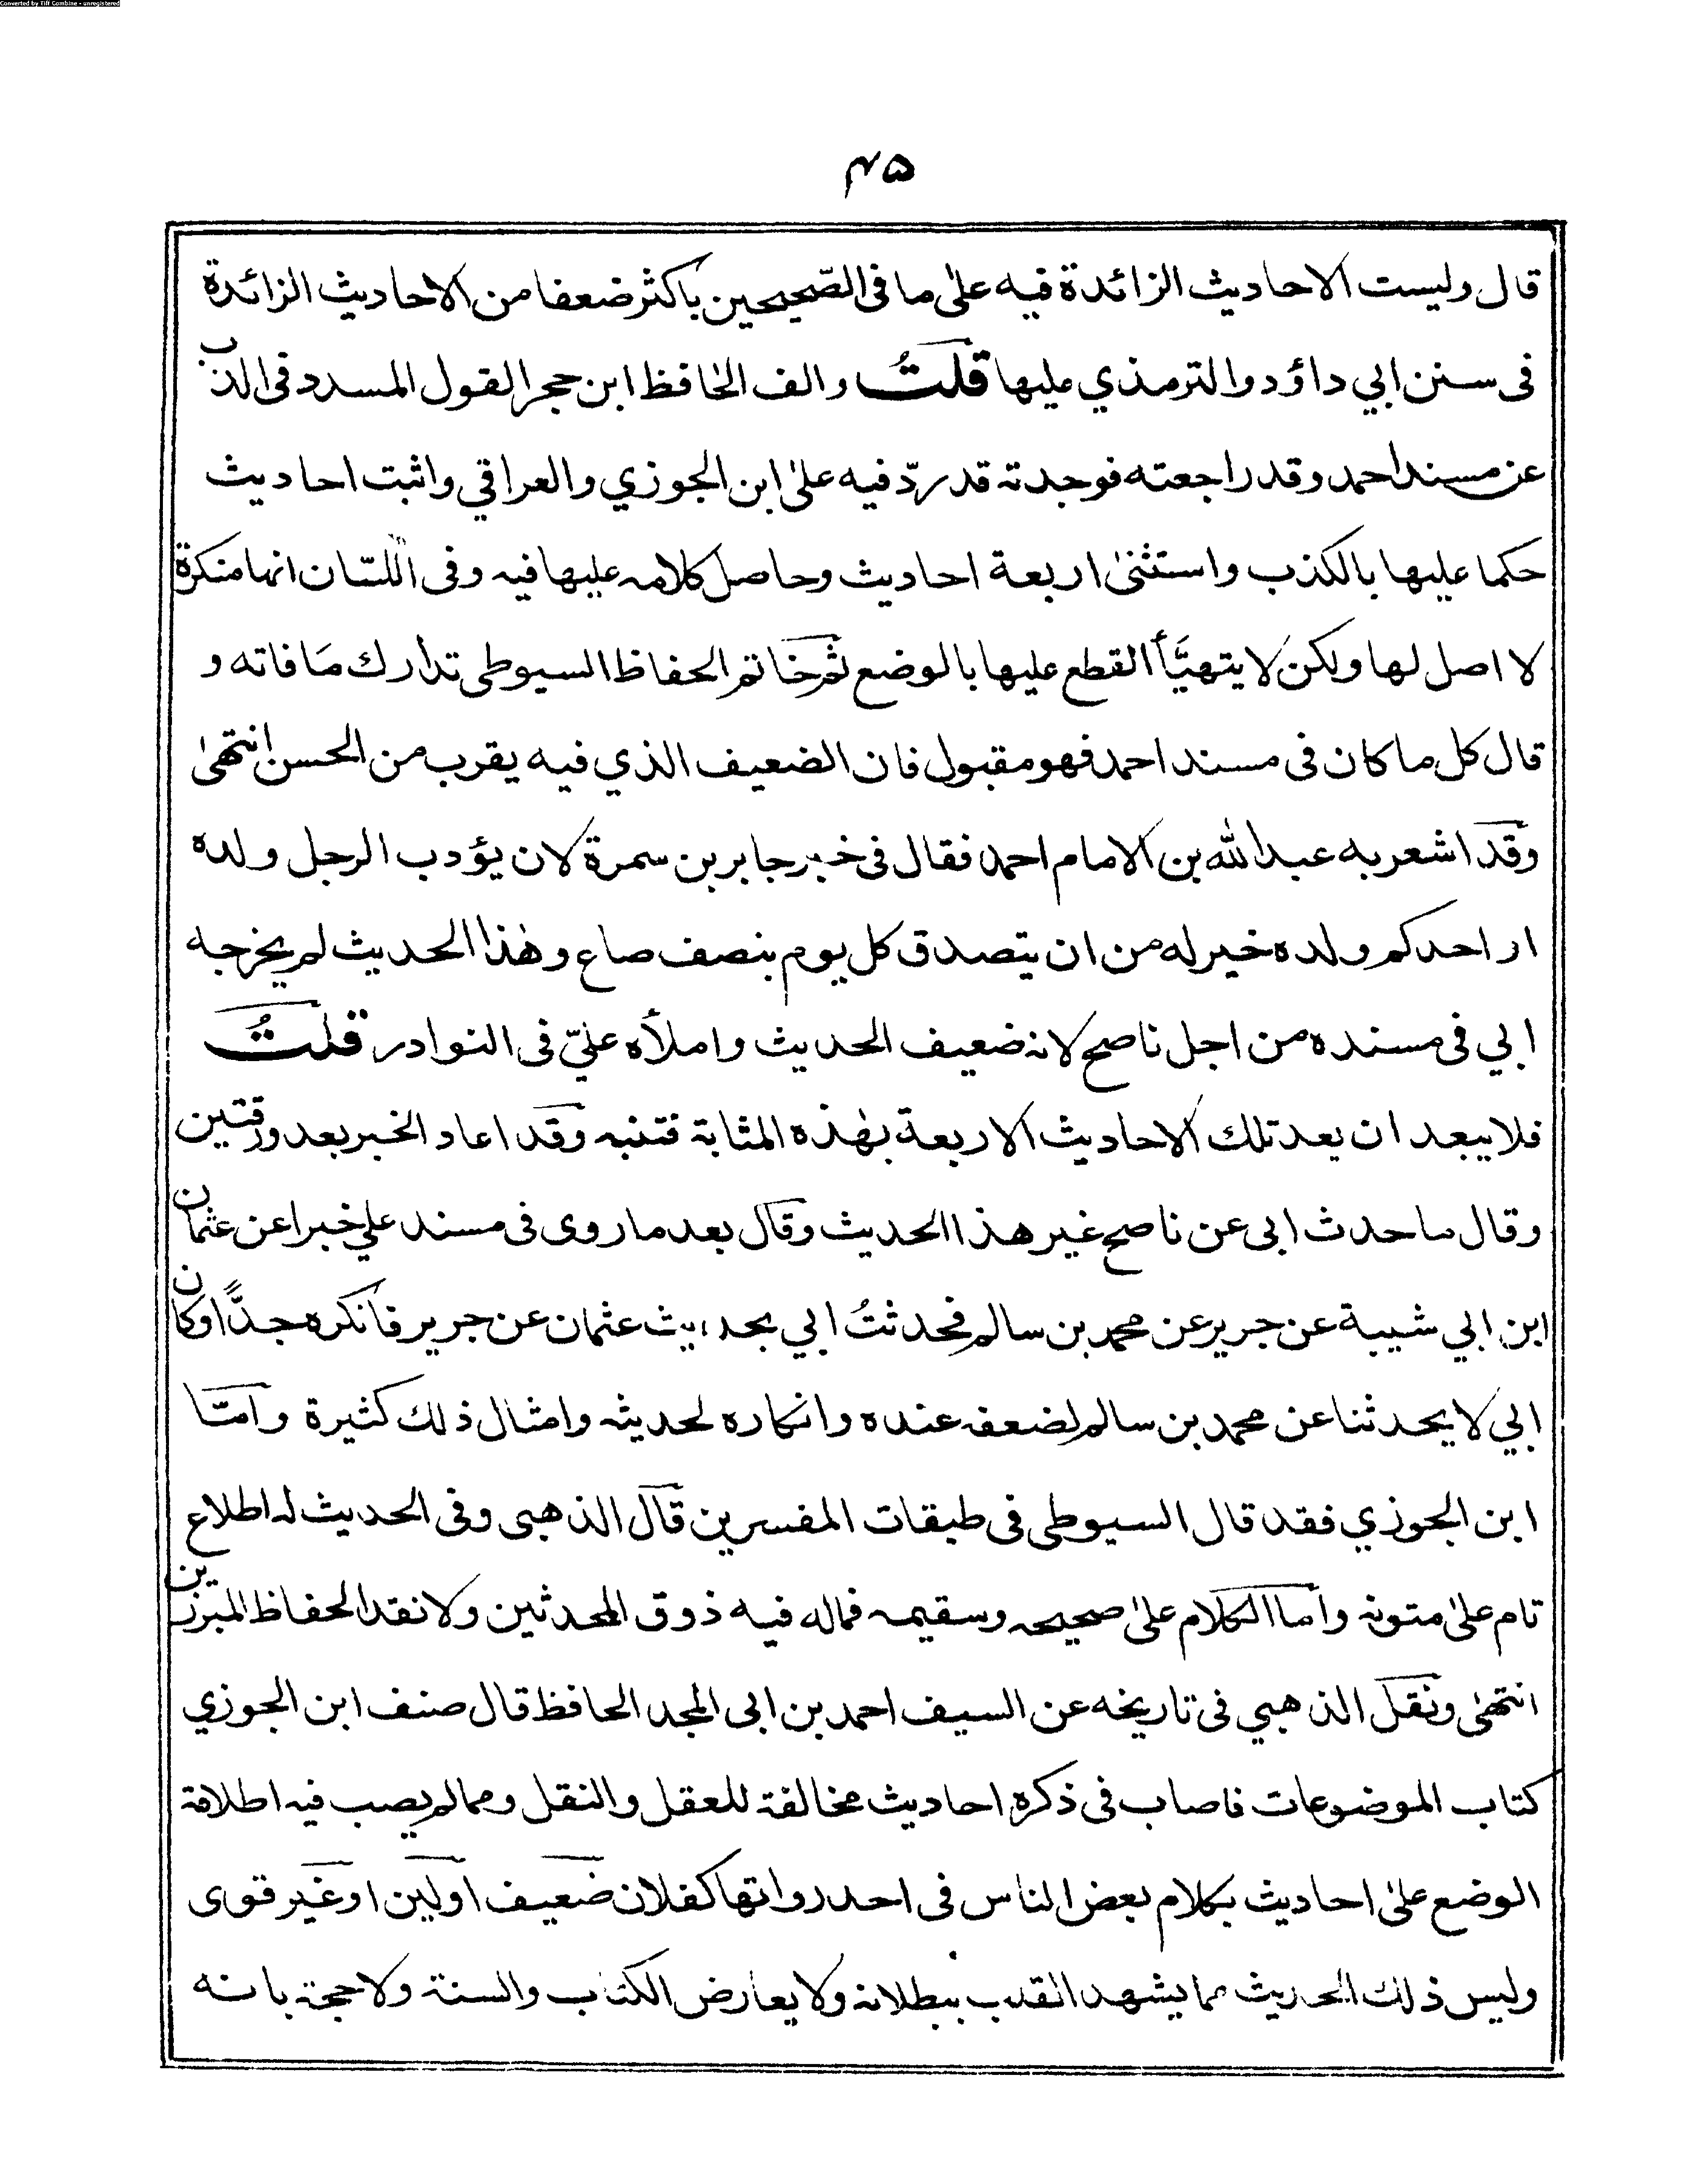 Converted by Tiff Combine - unregistered
۴۵
قال وليست الاحاديث الزائدة فيه علىٰ ما فى الصّحيحين باكثر ضعفا من الاحاديث الزائدة
فى سنن ابي داؤد والترمذي عليها قلتُ والف الحافظ ابن حجر القول المسدد فى الذب
عن مسند احمد وقد راجعته فوجدته قد ردّ فيه علىٰ ابن الجوزي والعراقي واثبت احاديث
حكما عليها بالكذب واستثنىٰ اربعة احاديث وحاصل كلامه عليها فيه وفى اللسّان انها منكرة
لا اصل لها ولكن لا يتهيَّأ القطع عليها بالوضع ثم خاتم الحفاظ السيوطى تدارك مَا فاته و
قال كل ما كان فى مسند احمد فهو مقبول فان الضعيف الذي فيه يقرب من الحسن انتهىٰ
وقد اشعر به عبد الله بن الامام احمد فقال فى خبر جابر بن سمرة لان يؤدب الرجل ولده
او احدكم ولده خير له من ان يتصدق كل يوم بنصف صاع وهٰذا الحديث لم يخرجه
ابي فى مسنده من اجل ناصح لانه ضعيف الحديث واملأه عليّ فى النوادر قلتُ
فلا يبعد ان يعد تلك الاحاديث الاربعة بهٰذه المثابة فتنبه وقد اعاد الخبر بعد ورقتين
وقال ما حدث ابى عن ناصح غير هذا الحديث وقال بعد ما روى فى مسند علي خبرا عن عثمان
ابن ابي شيبة عن جرير عن محمد بن سالم فحدثتُ ابي بحديث عثمان عن جرير فانكره جدًّا وكان
ابي لا يحدثنا عن محمد بن سالم لضعفه عنده وانكاره لحديثه وامثال ذلك كثيرة وامّا
ابن الجوزي فقد قال السيوطى فى طبقات المفسرين قال الذهبى وفى الحديث له اطلاع
تام علىٰ متونه واما الكلام علىٰ صحيحه وسقيمه فماله فيه ذوق المحدثين ولا نقد الحفاظ المبرزين
انتهىٰ ونقل الذهبي فى تاريخه عن السيف احمد بن ابى المجد الحافظ قال صنف ابن الجوزي
كتاب الموضوعات فاصاب فى ذكره احاديث مخالفة للعقل والنقل ومما لم يصب فيه اطلاقه
الوضع علىٰ احاديث بكلام بعض الناس فى احد رواتها كفلان ضعيف او لين او غير قوى
وليس ذلك الحديث مما يشهد القلب ببطلانه ولا يعارض الكتاب والسنة ولا حجة بانه